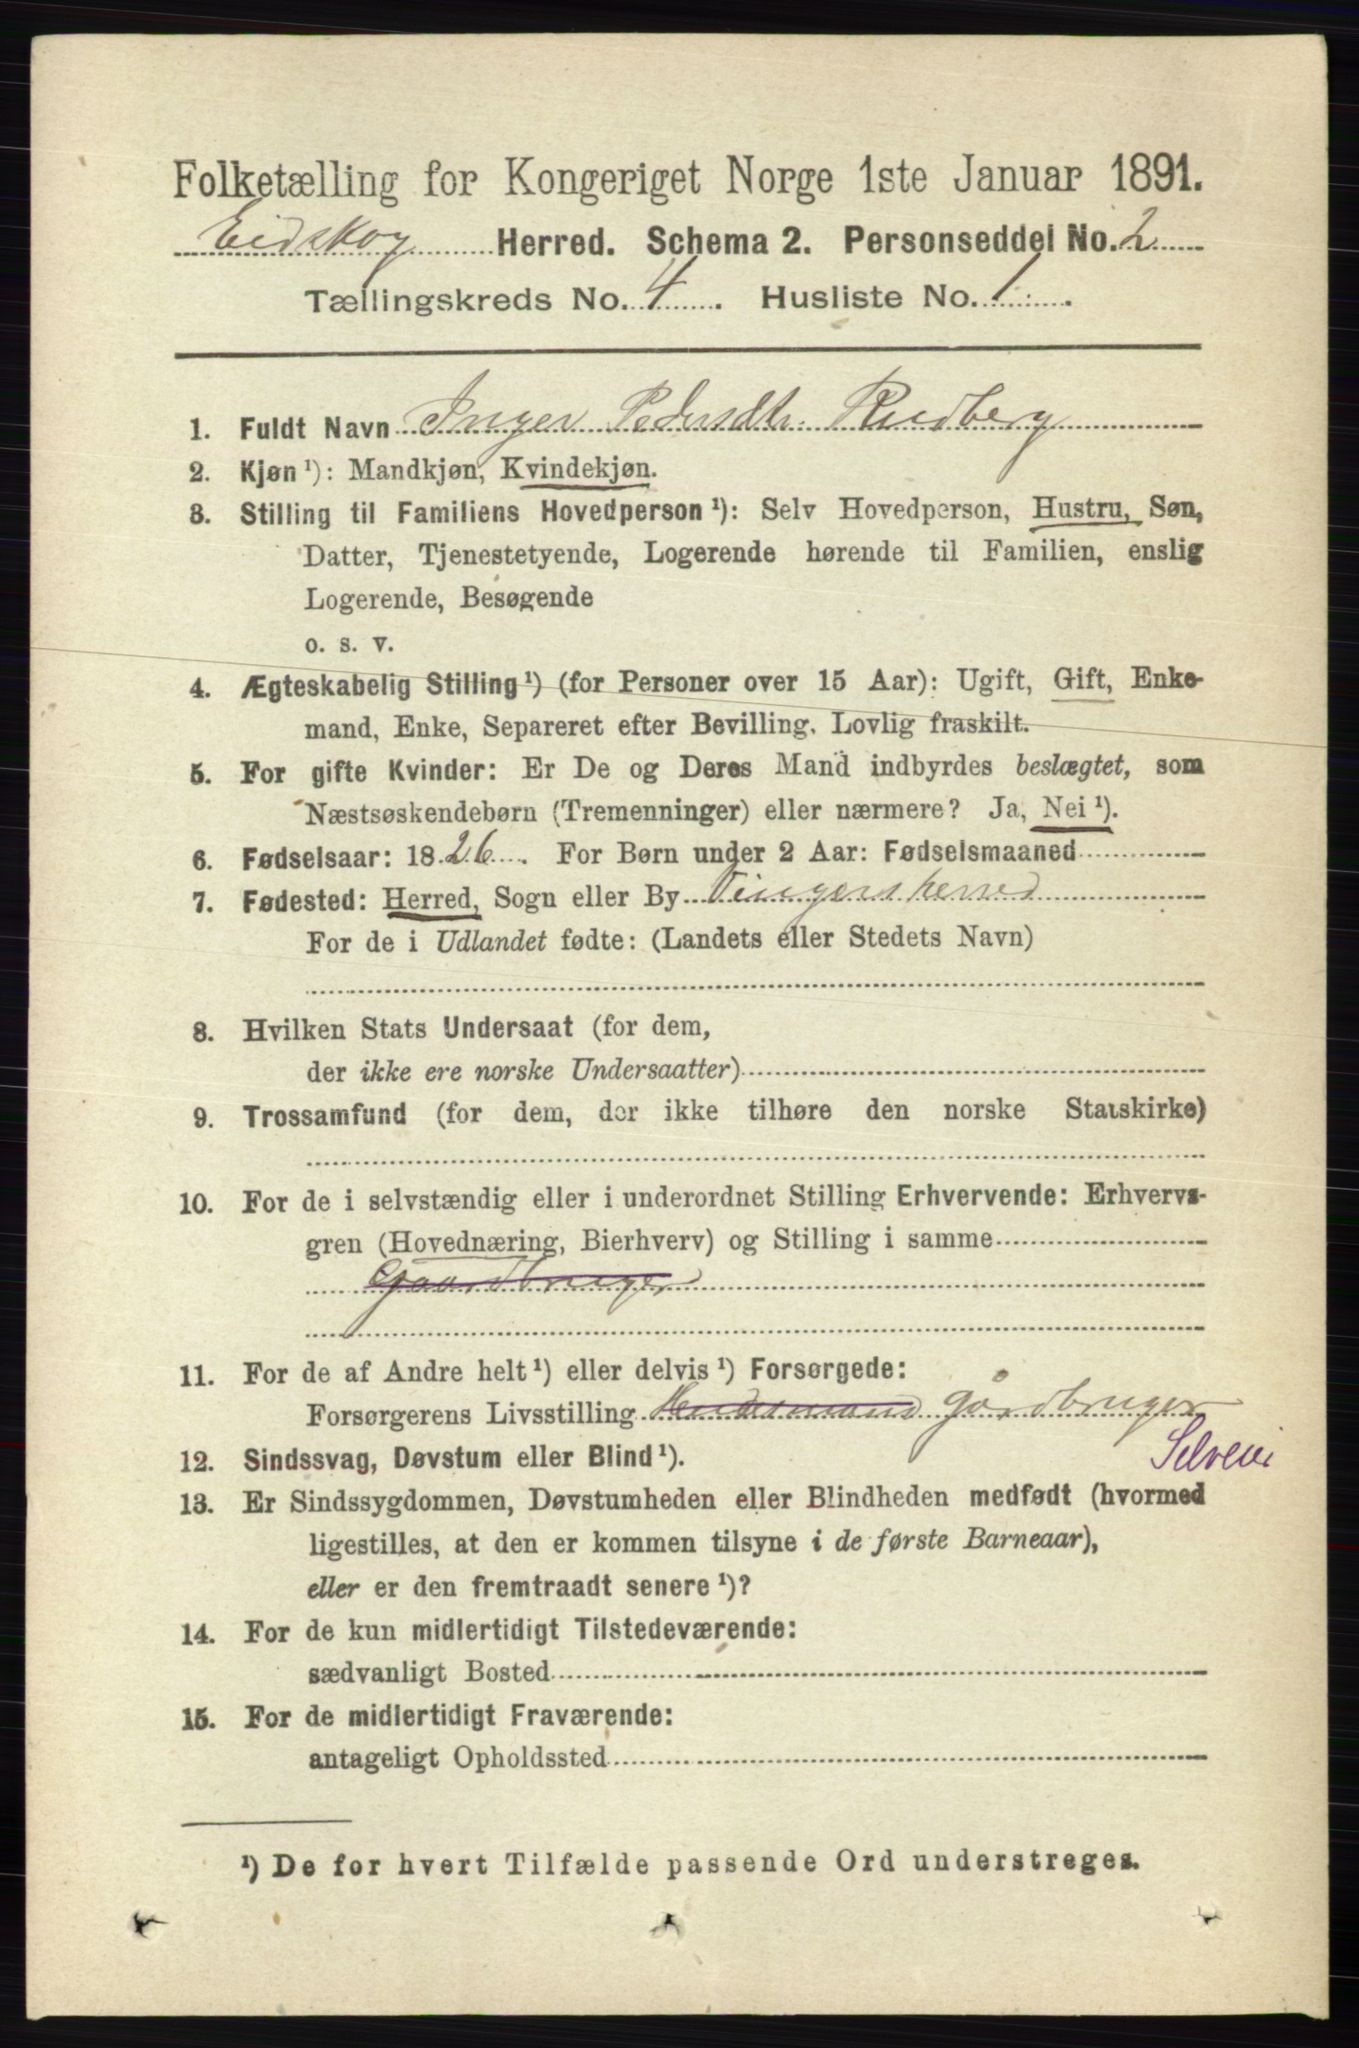 Folketælling for Kongeriget Norge 1ste Januar 1891.
Eidskog Herred. Schema 2. Personseddel No. 2
Tællingskreds No. 4. Husliste No. 1.
1. Fuldt Navn Inger Pedersdtr. Rudberg
2. Kjøn ¹): Mandkjøn, Kvindekjøn.
3. Stilling til Familiens Hovedperson ¹): Selv Hovedperson, Hustru, Søn,
Datter, Tjenestetyende, Logerende hørende til Familien, enslig
Logerende, Besøgende
o. s. v.
4. Ægteskabelig Stilling ¹) (for Personer over 15 Aar): Ugift, Gift, Enke-
mand, Enke, Separeret efter Bevilling. Lovlig fraskilt.
5. For gifte Kvinder: Er De og Deres Mand indbyrdes beslægtet, som
Næstsøskendebørn (Tremenninger) eller nærmere? Ja, Nei ¹).
6. Fødselsaar: 1826. For Børn under 2 Aar: Fødselsmaaned
7. Fødested: Herred, Sogn eller By Vingers herred
For de i Udlandet fødte: (Landets eller Stedets Navn)
8. Hvilken Stats Undersaat (for dem,
der ikke ere norske Undersaatter)
9. Trossamfund (for dem, der ikke tilhøre den norske Statskirke)
10. For de i selvstændig eller i underordnet Stilling Erhvervende: Erhvervs-
gren (Hovednæring, Bierhverv) og Stilling i samme
Gaardbruger
11. For de af Andre helt ¹) eller delvis ¹) Forsørgede:
Forsørgerens Livsstilling gårdbruger
Selveier
12. Sindssvag, Døvstum eller Blind ¹).
13. Er Sindssygdommen, Døvstumheden eller Blindheden medfødt (hvormed
ligestilles, at den er kommen tilsyne i de første Barneaar),
eller er den fremtraadt senere ¹)?
14. For de kun midlertidigt Tilstedeværende:
sædvanligt Bosted
15. For de midlertidigt Fraværende:
antageligt Opholdssted
¹) De for hvert Tilfælde passende Ord understreges.